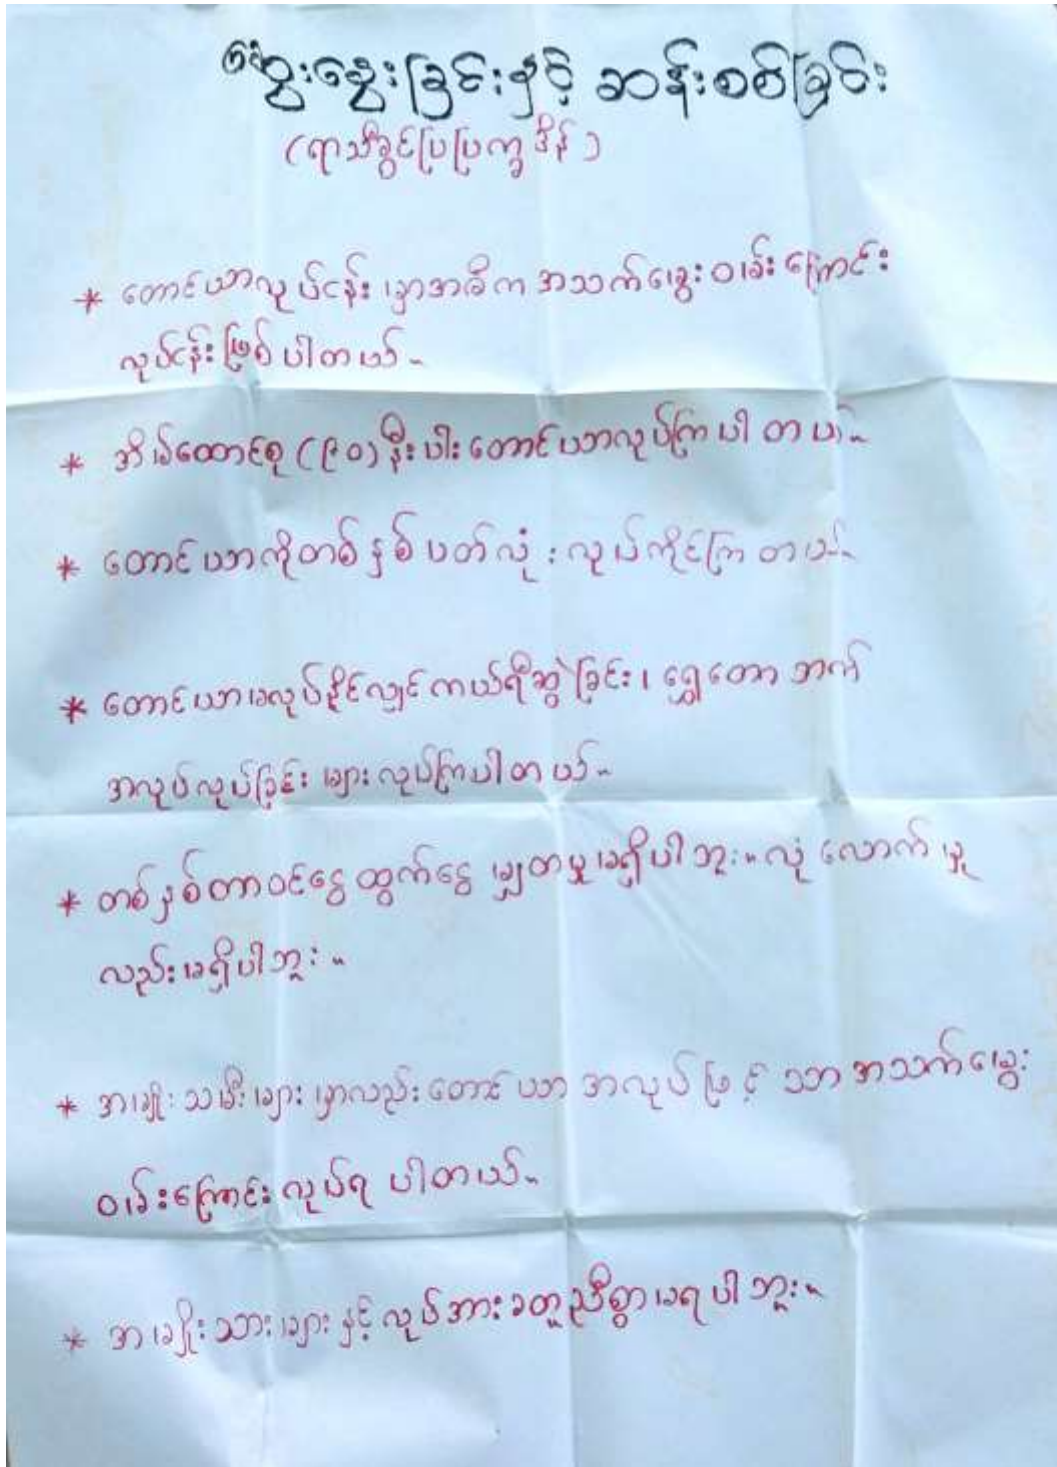 ဆွေးနွေးခြင်းနှင့် ဆန်းစစ်ခြင်း
(ရာသီခွင်ပြပြက္ခဒိန်)
* တောင်ယာလုပ်ငန်းမှာအဓိက အသက်မွေးဝမ်းကြောင်း
လုပ်ငန်းဖြစ်ပါတယ်။
* အိမ်ထောင်စု (၉၀) နီးပါး တောင်ယာလုပ်ကြပါတယ်။
* တောင်ယာကိုတစ်နှစ်ပတ်လုံး လုပ်ကိုင်ကြတယ်။
* တောင်ယာမလုပ်နိုင်လျှင် ကယ်ရီဆွဲခြင်း၊ ရွှေတောဘက်
အလုပ်လုပ်ခြင်းများလုပ်ကြပါတယ်။
* တစ်နှစ်တာဝင်ငွေထွက်ငွေ မျှတမှုမရှိပါဘူး။ လုံလောက်မှု
လည်းမရှိပါဘူး။
* အမျိုးသမီးများမှာလည်းတောင်ယာအလုပ်ဖြင့်သာ အသက်မွေး
ဝမ်းကြောင်းလုပ်ရပါတယ်။
* အမျိုးသားများနှင့်လုပ်အားခတူညီစွာမရပါဘူး။